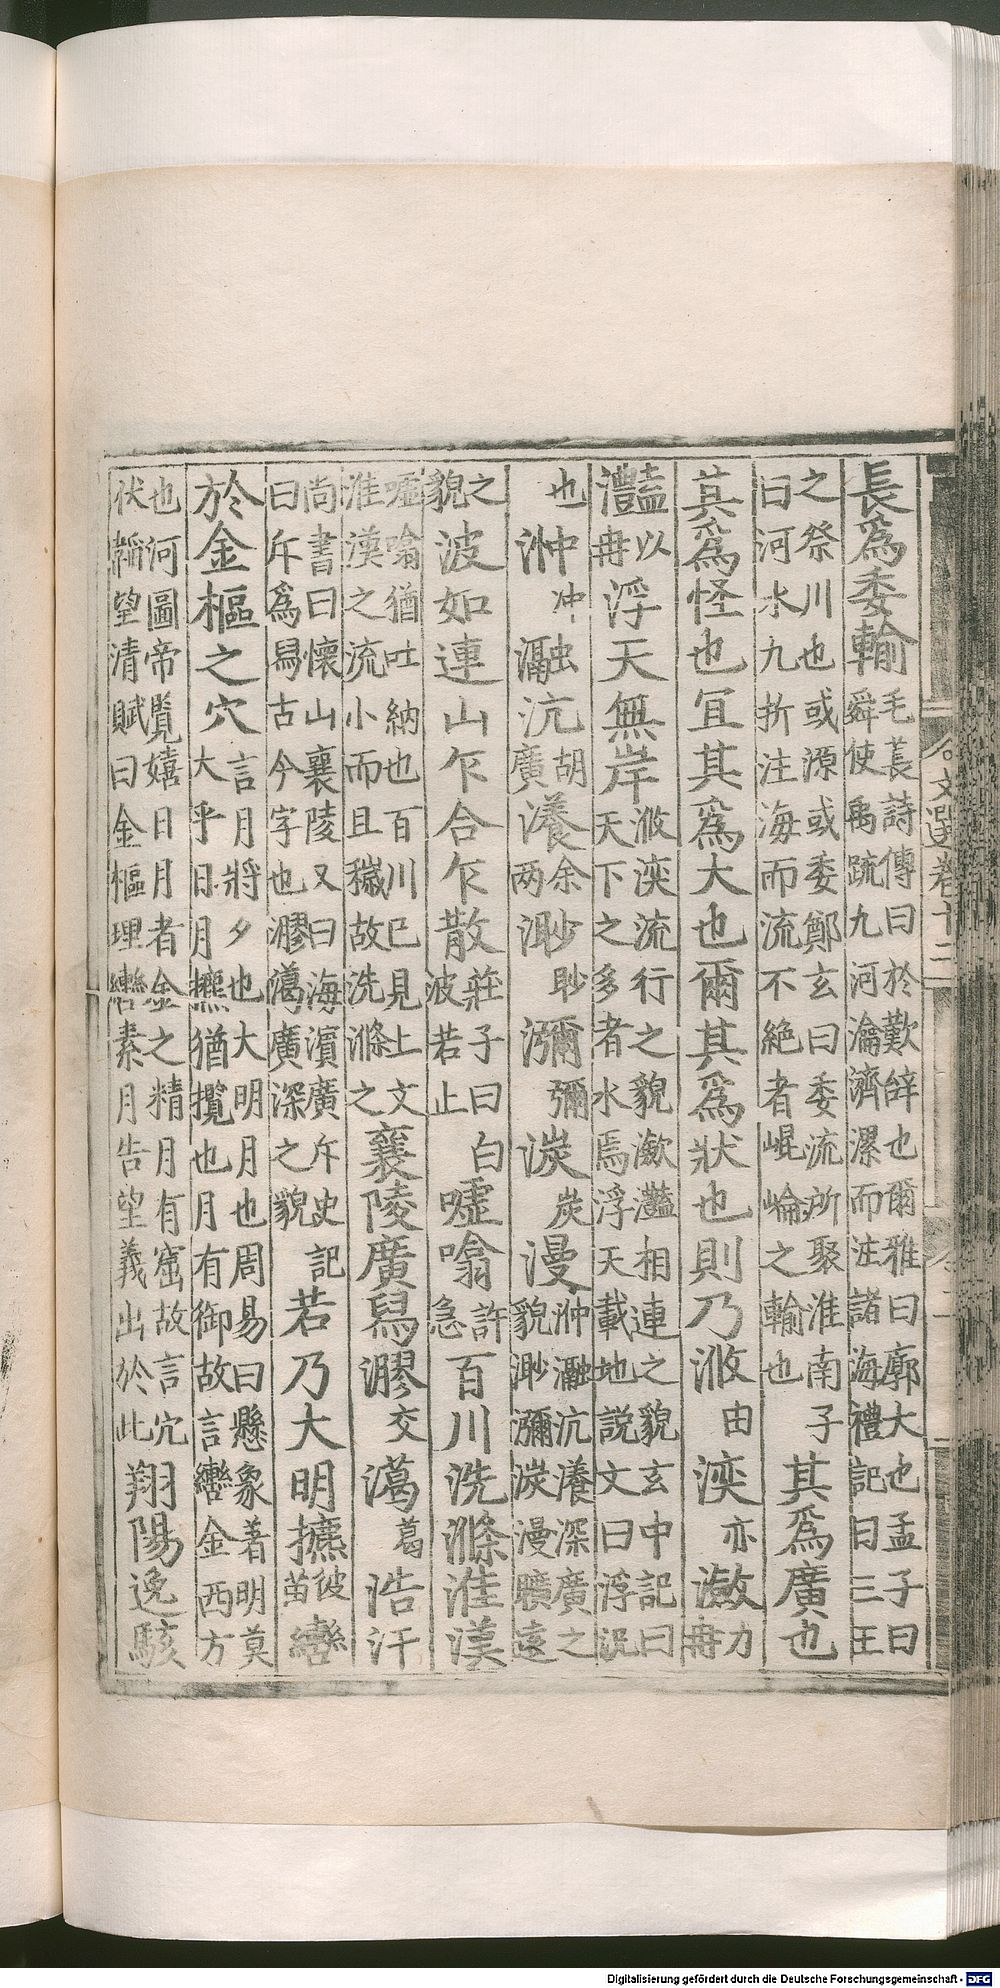 長爲委輸毛萇詩傳曰於歎辞也爾雅曰廓大也孟子曰
舜使禹䟽九河瀹濟漯而注諸海禮記曰三王
之祭川也或源或委鄭玄曰委流所聚淮南子
曰河水九折注海而流不絶者崐崘之輸也其爲廣也
其爲怪也宜其爲大也爾其爲狀也則乃浟由湙亦瀲力冉
灧以冉浮天無岸浟湙流行之貌瀲灔相連之貌玄中記曰
天下之多者水焉浮天載地説文曰浮汎
也浺冲瀜融沆胡廣瀁余两渺眇瀰彌湠炭漫浺瀜沆瀁深廣之
貌渺瀰湠漫曠遠
之貌波如連山乍合乍散莊子曰白波若止嘘噏許急百川洗滌淮漢
嘘噏猶吐納也百川已見上文
淮漢之流小而且穢故洗滌之襄陵廣舄㶀交㵧葛浩汗
尚書曰懷山襄陵又曰海濱廣斥史記
曰斥爲舄古今字也㶀㵧廣深之貌若乃大明㩠彼苗轡
於金樞之穴言月將夕也大明月也周易曰懸象著明莫
大乎日月㩠猶攬也月有御故言轡金西方
也河圖帝覽嬉曰月者金之精月有窟故言穴
伏韜望清賦曰金樞理轡素月告望義出於此翔陽逸駭
文選卷十二
二
Digitalisierung gefördert durch die Deutsche Forschungsgemeinschaft - DFG